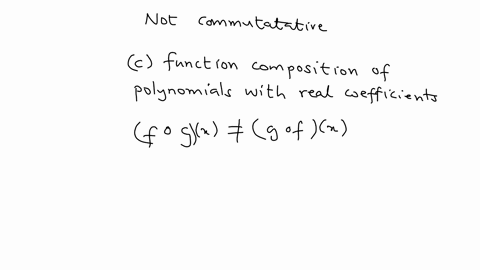 Not commutatative
(c) function composition of
polynomials with real coefficients
(f o g)(x) ≠ (g o f)(x)